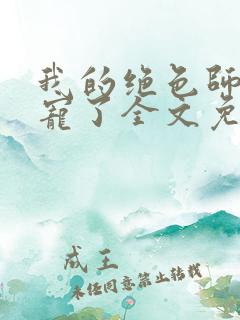 我的绝色师
宠了全文免
成王
未经同意禁止转载